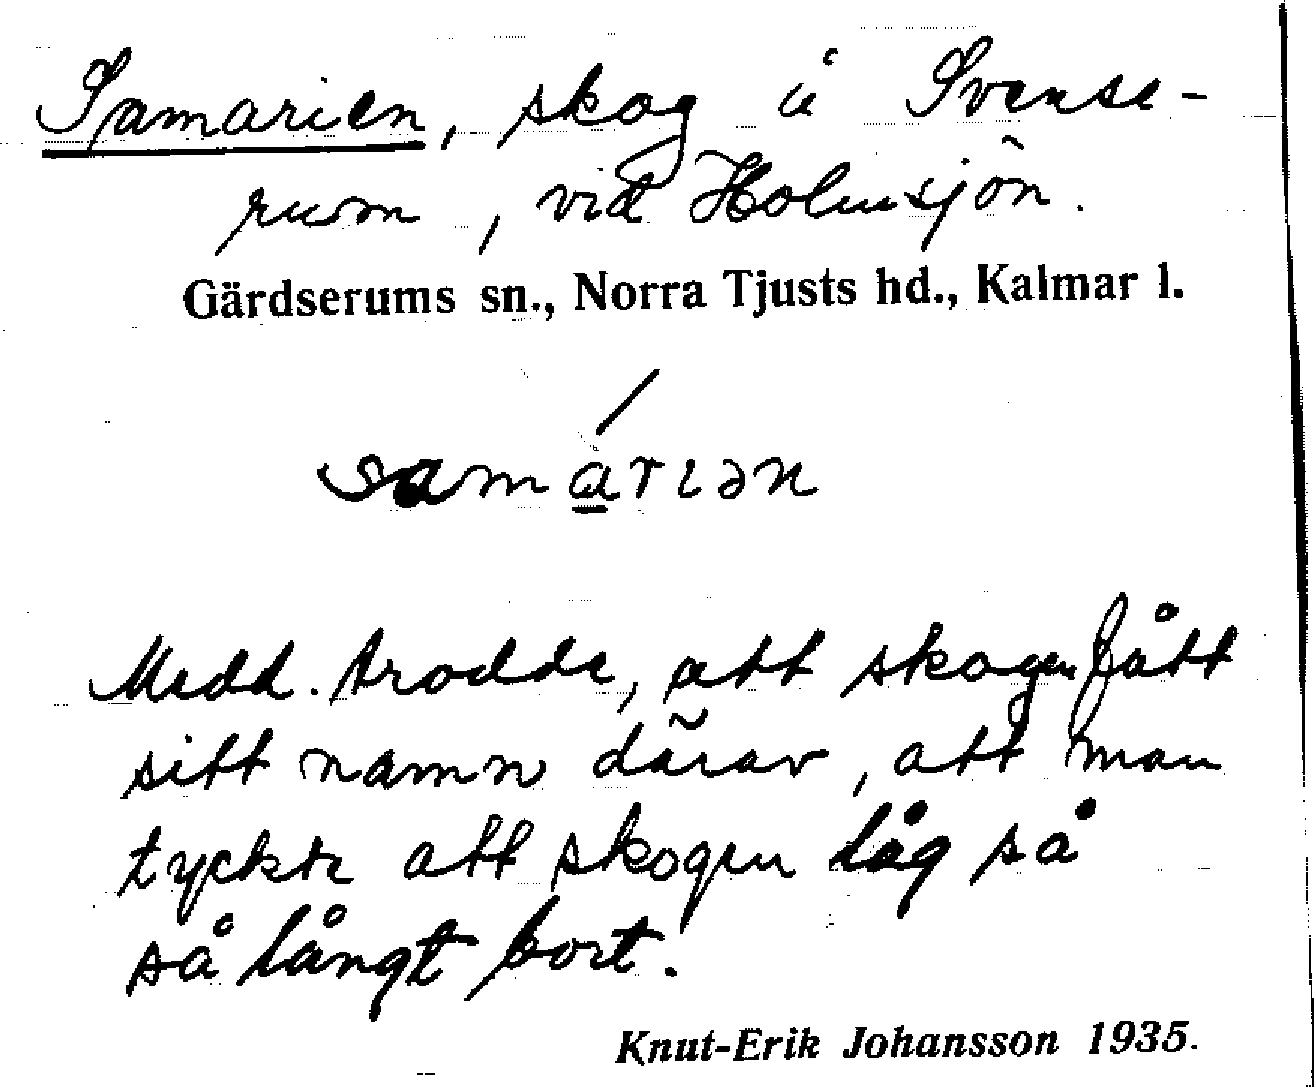 Samarien, skog å Svense-
rum, vid Holmsjön.
Gärdserums sn., Norra Tjusts hd., Kalmar l.
samariən
Medd. trodde, att skogen fått
sitt namn därav, att man
tyckte att skogen låg så
så långt bort.
Knut-Erik Johansson 1935.